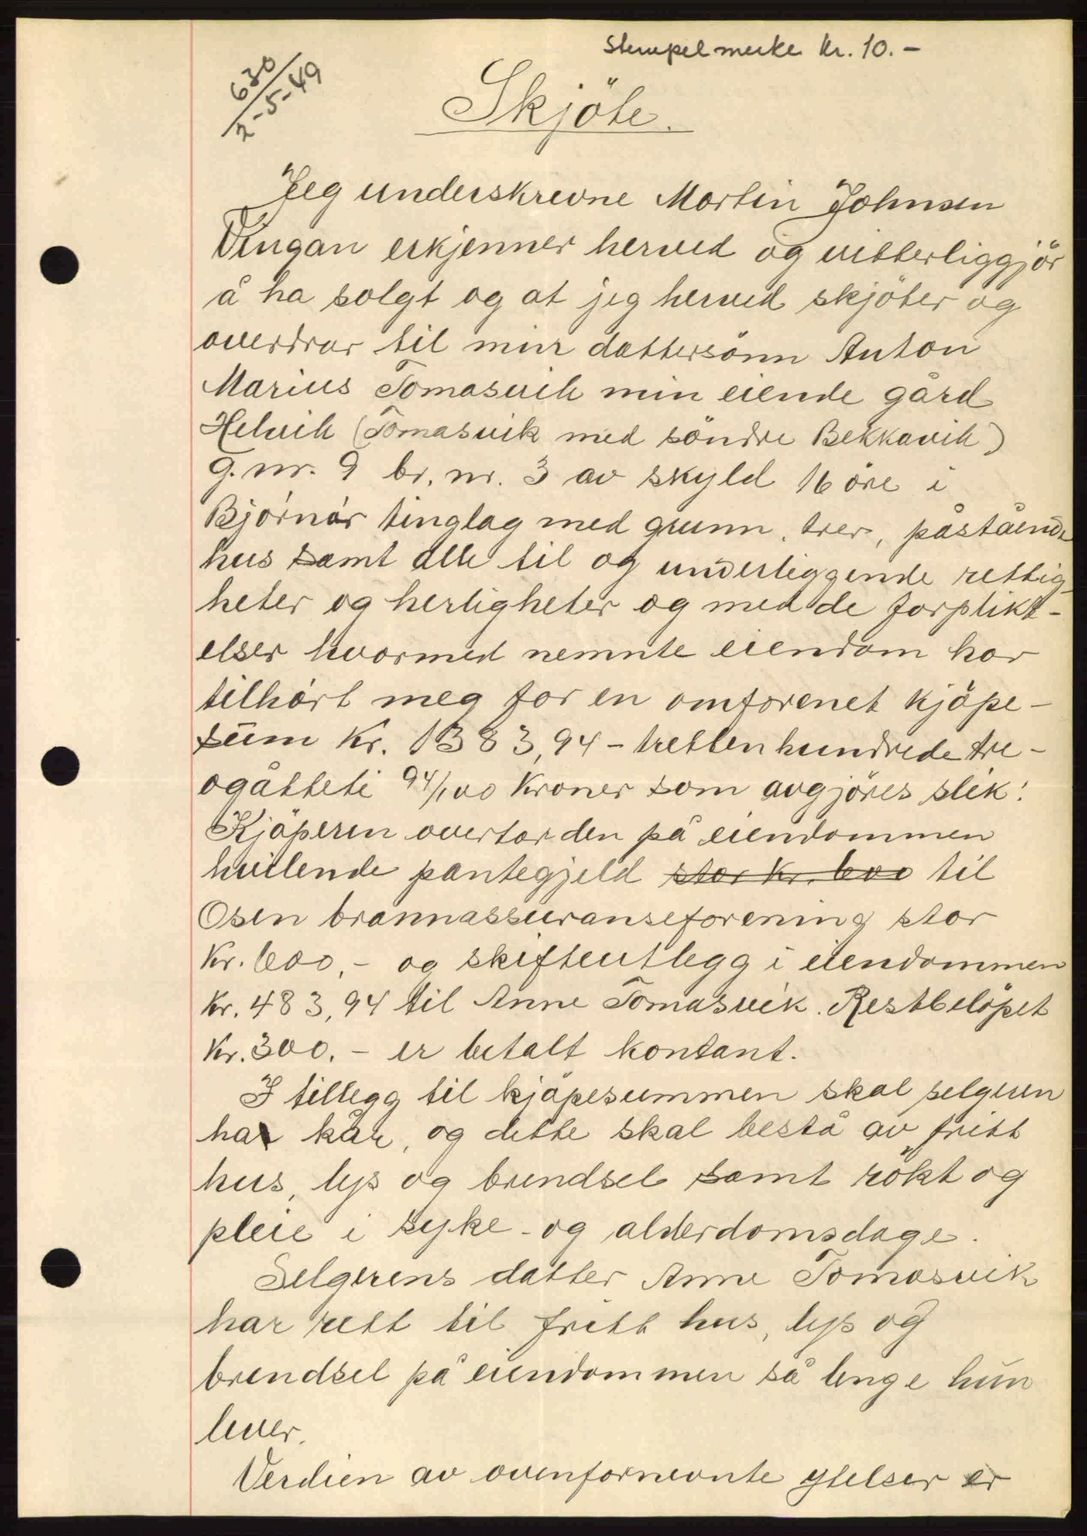 Stempelmerke kr. 10.-
630
2-5-49
Skjöte.
Jeg underskrevne Martin Johnsen
Vingan erkjenner herved og vitterliggjör
å ha solgt og at jeg herved skjöter og
overdrar til min dattersönn Anton
Marius Tomasvik min eiende gård
Helvik (Tomasvik med söndre Bekkavik)
G.nr. 9 br. nr. 3 av skyld 16 öre i
Bjørnør tinglag med grunn, trer, påstående
hus samt alle til og underliggende rettig-
heter og herligheter og med de forplikt-
elser hvormed nemnte eiendom har
tilhört meg for en omforenet kjöpe-
sum kr. 1383,94 - trettenhundrede tre-
ogåtteti 94/100 kroner som avgjöres slik:
Kjöperen overtar den på eiendommen
hvilende pantegjeld stor kr. 600 til
Osen brannassuranseforening stor
kr. 600,- og skifteutlegg i eiendommen
kr. 483,94 til Anne Tomasvik. Restbelöpet
kr. 300.- er betalt kontant.
I tillegg til kjöpesummen skal selgeren
ha kår, og dette skal bestå av fritt
hus, lys og brendsel samt rökt og
pleie i syke- og alderdomsdage.
Selgerens datter Anne Tomasvik
har rett til fritt hus, lys og
brendsel på eiendommen så lenge hun
lever.
Verdien av ovenfornevnte ytelser er